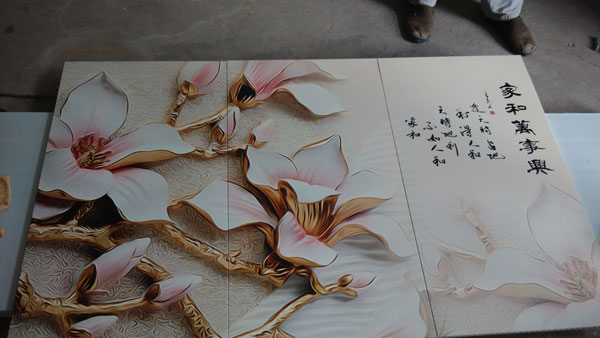 家和萬事興
天時占地
利得人和
天時地利
不如人和
家和